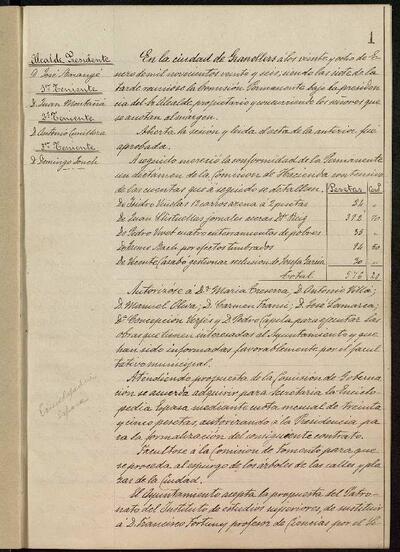 1
Alcalde Presidente
D. José Barangé
1er Teniente
D. Juan Montañá
2º Teniente
D. Antonio Cumillera
3er Teniente
D. Domingo
En la ciudad de Granollers á los veinte y ocho de E-
nero de mil novecientos veinte y seis, siendo las siete de la
tarde reunióse la Comisión Permanente bajo la presiden-
cia del Sr. Alcalde, propietario y concurriendo los señores que
se anotan al margen.
Abierta la sesión y leída el acta de la anterior fué
aprobada.
Acto seguido mereció la conformidad de la Permanente
un dictamen de la Comisión de Hacienda con
de las cuentas que á seguido se detallan. Pesetas Cts
De Isidro Viñolas 12 carros arena á 2 pesetas 24 "
De Juan jornales aceras Dr. Roig 392 70
De Pedro Vivet cuatro enterramientos de pobres "
De Bach por efectos timbrados 24 50
De Vicente Casabó gestionar reclusión de Josefa Garcia "
Total 576 20
Autorízase á Dª Maria Creserra, D. Antonio Villá;
D. Manuel Oliva; D. Carmen; D. José Lamarca;
Dª Concepción Vergés y D. Pedro Capela, para ejecutar las
obras que tienen interesadas al Ayuntamiento y que
han sido informadas favorablemente por el facul-
tativo municipal.
Enciclopedia
Espasa
Atendiendo propuesta de la Comisión de Goberna-
ción se acuerda adquirir para Secretaría la Enciclo-
pedia Espasa, mediante cuota mensual de treinta
y cinco pesetas, autorizando á la Presidencia pa-
ra la formalización del consiguiente contrato.
Facúltase á la Comisión de Fomento para que
se proceda al espurgo de los árboles de las calles y pla-
zas de la Ciudad.
El Ayuntamiento acepta la propuesta del Patro-
nato del Instituto de estudios superiores, de sustituir
á D. Francisco Fortuny profesor de Ciencias por el Sr.